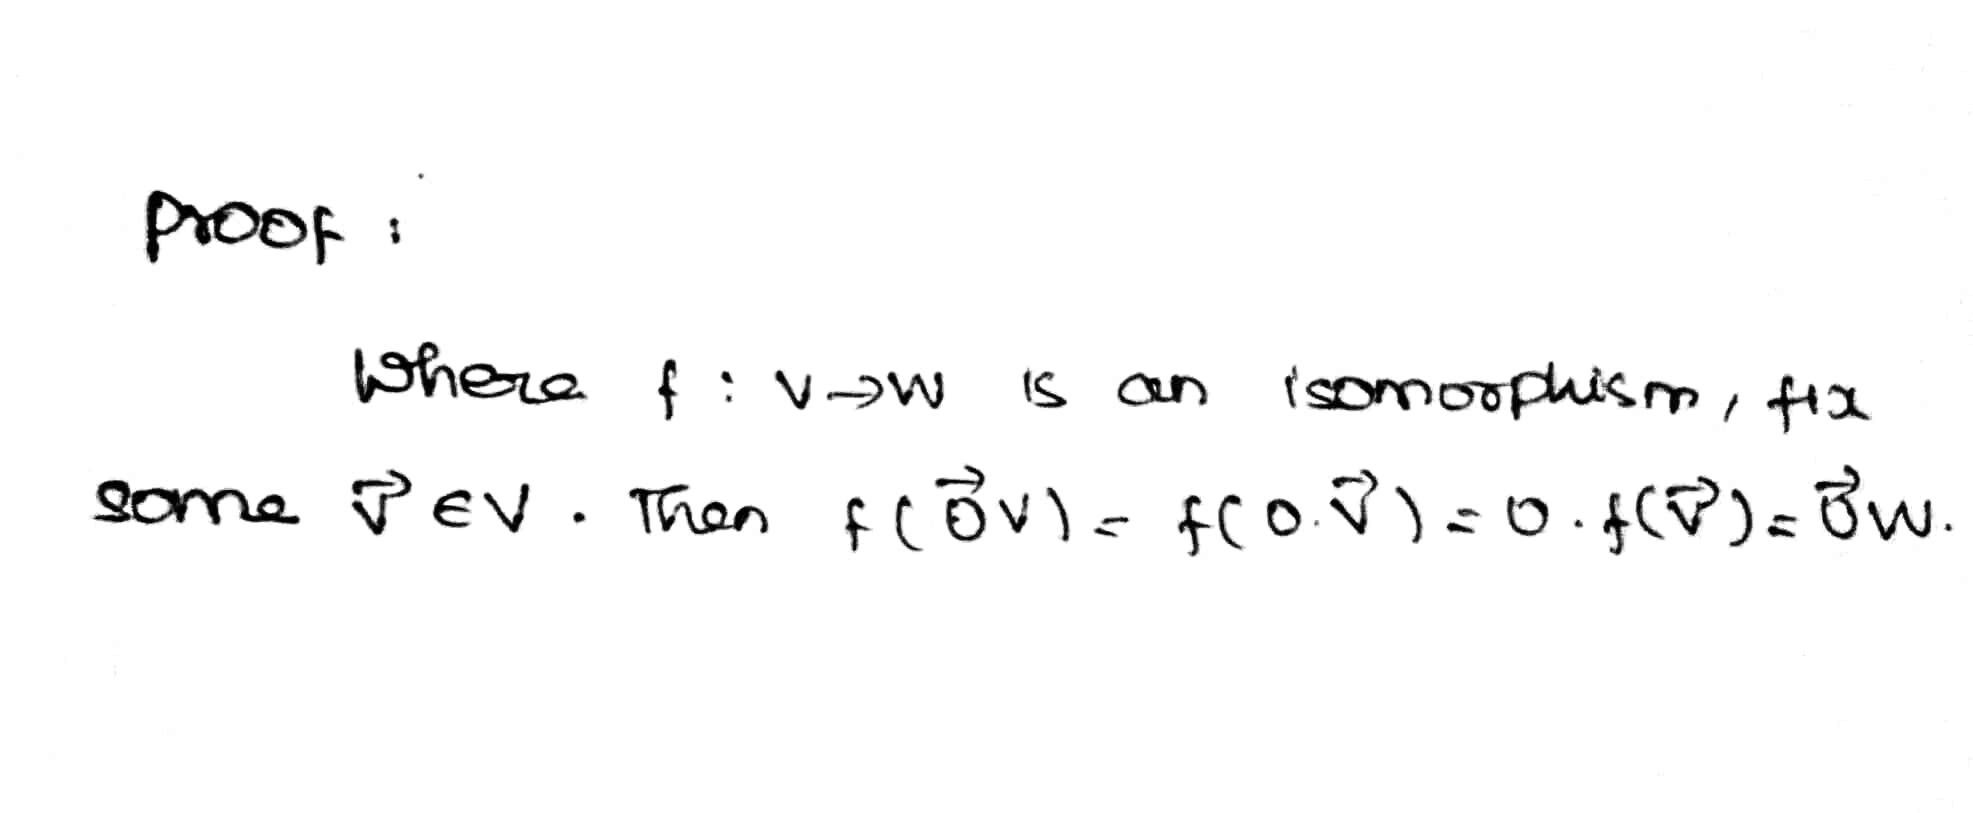 Proof :
Where f : V→W is an isomorphism, fix
some v⃗ ∈ V. Then f(0⃗V) = f(0.v⃗) = 0.f(v⃗) = 0⃗W.